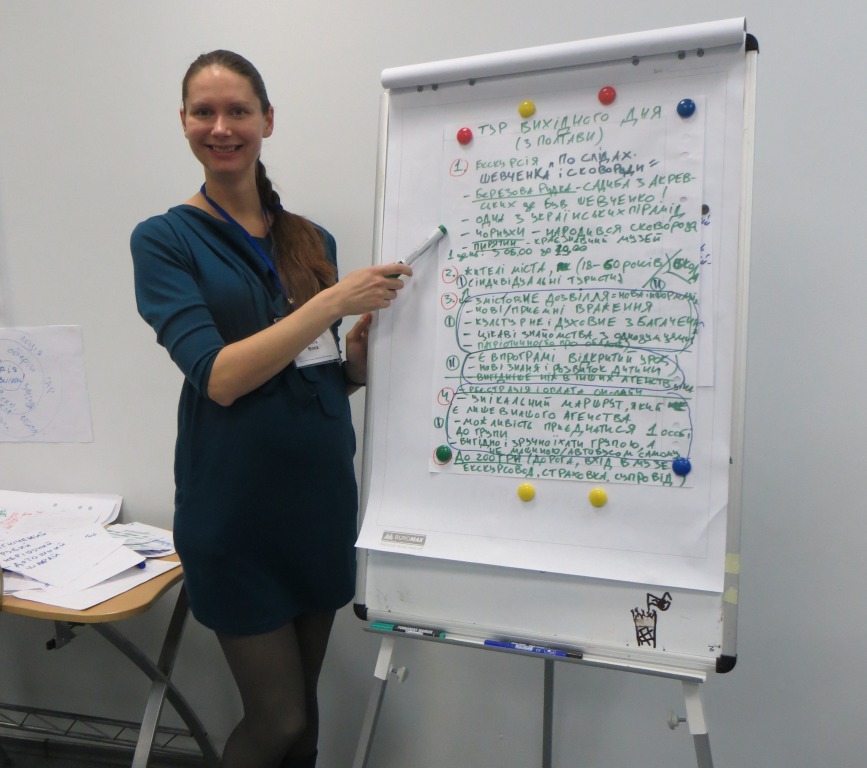 ТУР ВИХІДНОГО ДНЯ
(З ПОЛТАВИ)
1. ЕКСКУРСІЯ "ПО СЛІДАХ
ШЕВЧЕНКА І СКОВОРОДИ"
БЕРЕЗОВА РУДКА - САДИБА ЗАКРЕВ-
СЬКИХ, ДЕ БУВ ШЕВЧЕНКО!
- ОДНА З УКРАЇНСЬКИХ ПІРАМІД
- ЧОРНУХИ - НАРОДИВСЯ СКОВОРОДА
- ПИРЯТИН - КРАЄЗНАВЧИЙ МУЗЕЙ
1 ДЕНЬ: З 06.00 ДО
2. ЖИТЕЛІ МІСТА, (18-60 РОКІВ)
ІНДИВІДУАЛЬНІ ТУРИСТИ
3. ЗМІСТОВНЕ ДОЗВІЛЛЯ = НОВА ІНФОРМАЦІЯ
- НОВІ/ПРИЄМНІ ВРАЖЕННЯ
I - КУЛЬТУРНЕ І ДУХОВНЕ ЗБАГАЧЕННЯ
- ЦІКАВІ ЗНАЙОМСТВА З ОДНОДУМЦЯМИ
II - Є В ПРОГРАМІ ВІДКРИТИЙ УРОК
- НОВІ ЗНАННЯ І РОЗВИТОК ДИТИНИ
- ВИГІДНІШЕ НІЖ В ІНШИХ АГЕНСТВ
- РЕЄСТРАЦІЯ І ОПЛАТА ОН-ЛАЙН
4. - УНІКАЛЬНИЙ МАРШРУТ, ЯКИЙ
I Є ЛИШЕ В НАШОГО АГЕНСТВА
- МОЖЛИВІСТЬ ПРИЄДНАТИСЯ 1 ОСОБІ
ДО ГРУПИ
- ВИГІДНО І ЗРУЧНО ЇХАТИ ГРУПОЮ, А
НЕ МАШИНОЮ/АВТОБУСОМ САМОМУ
ДО 200 ГРН (ДОРОГА, ВХІД В МУЗЕЇ,
ЕКСКУРСОВОД, СТРАХОВКА, СУПРОВІД)
BUROMAX